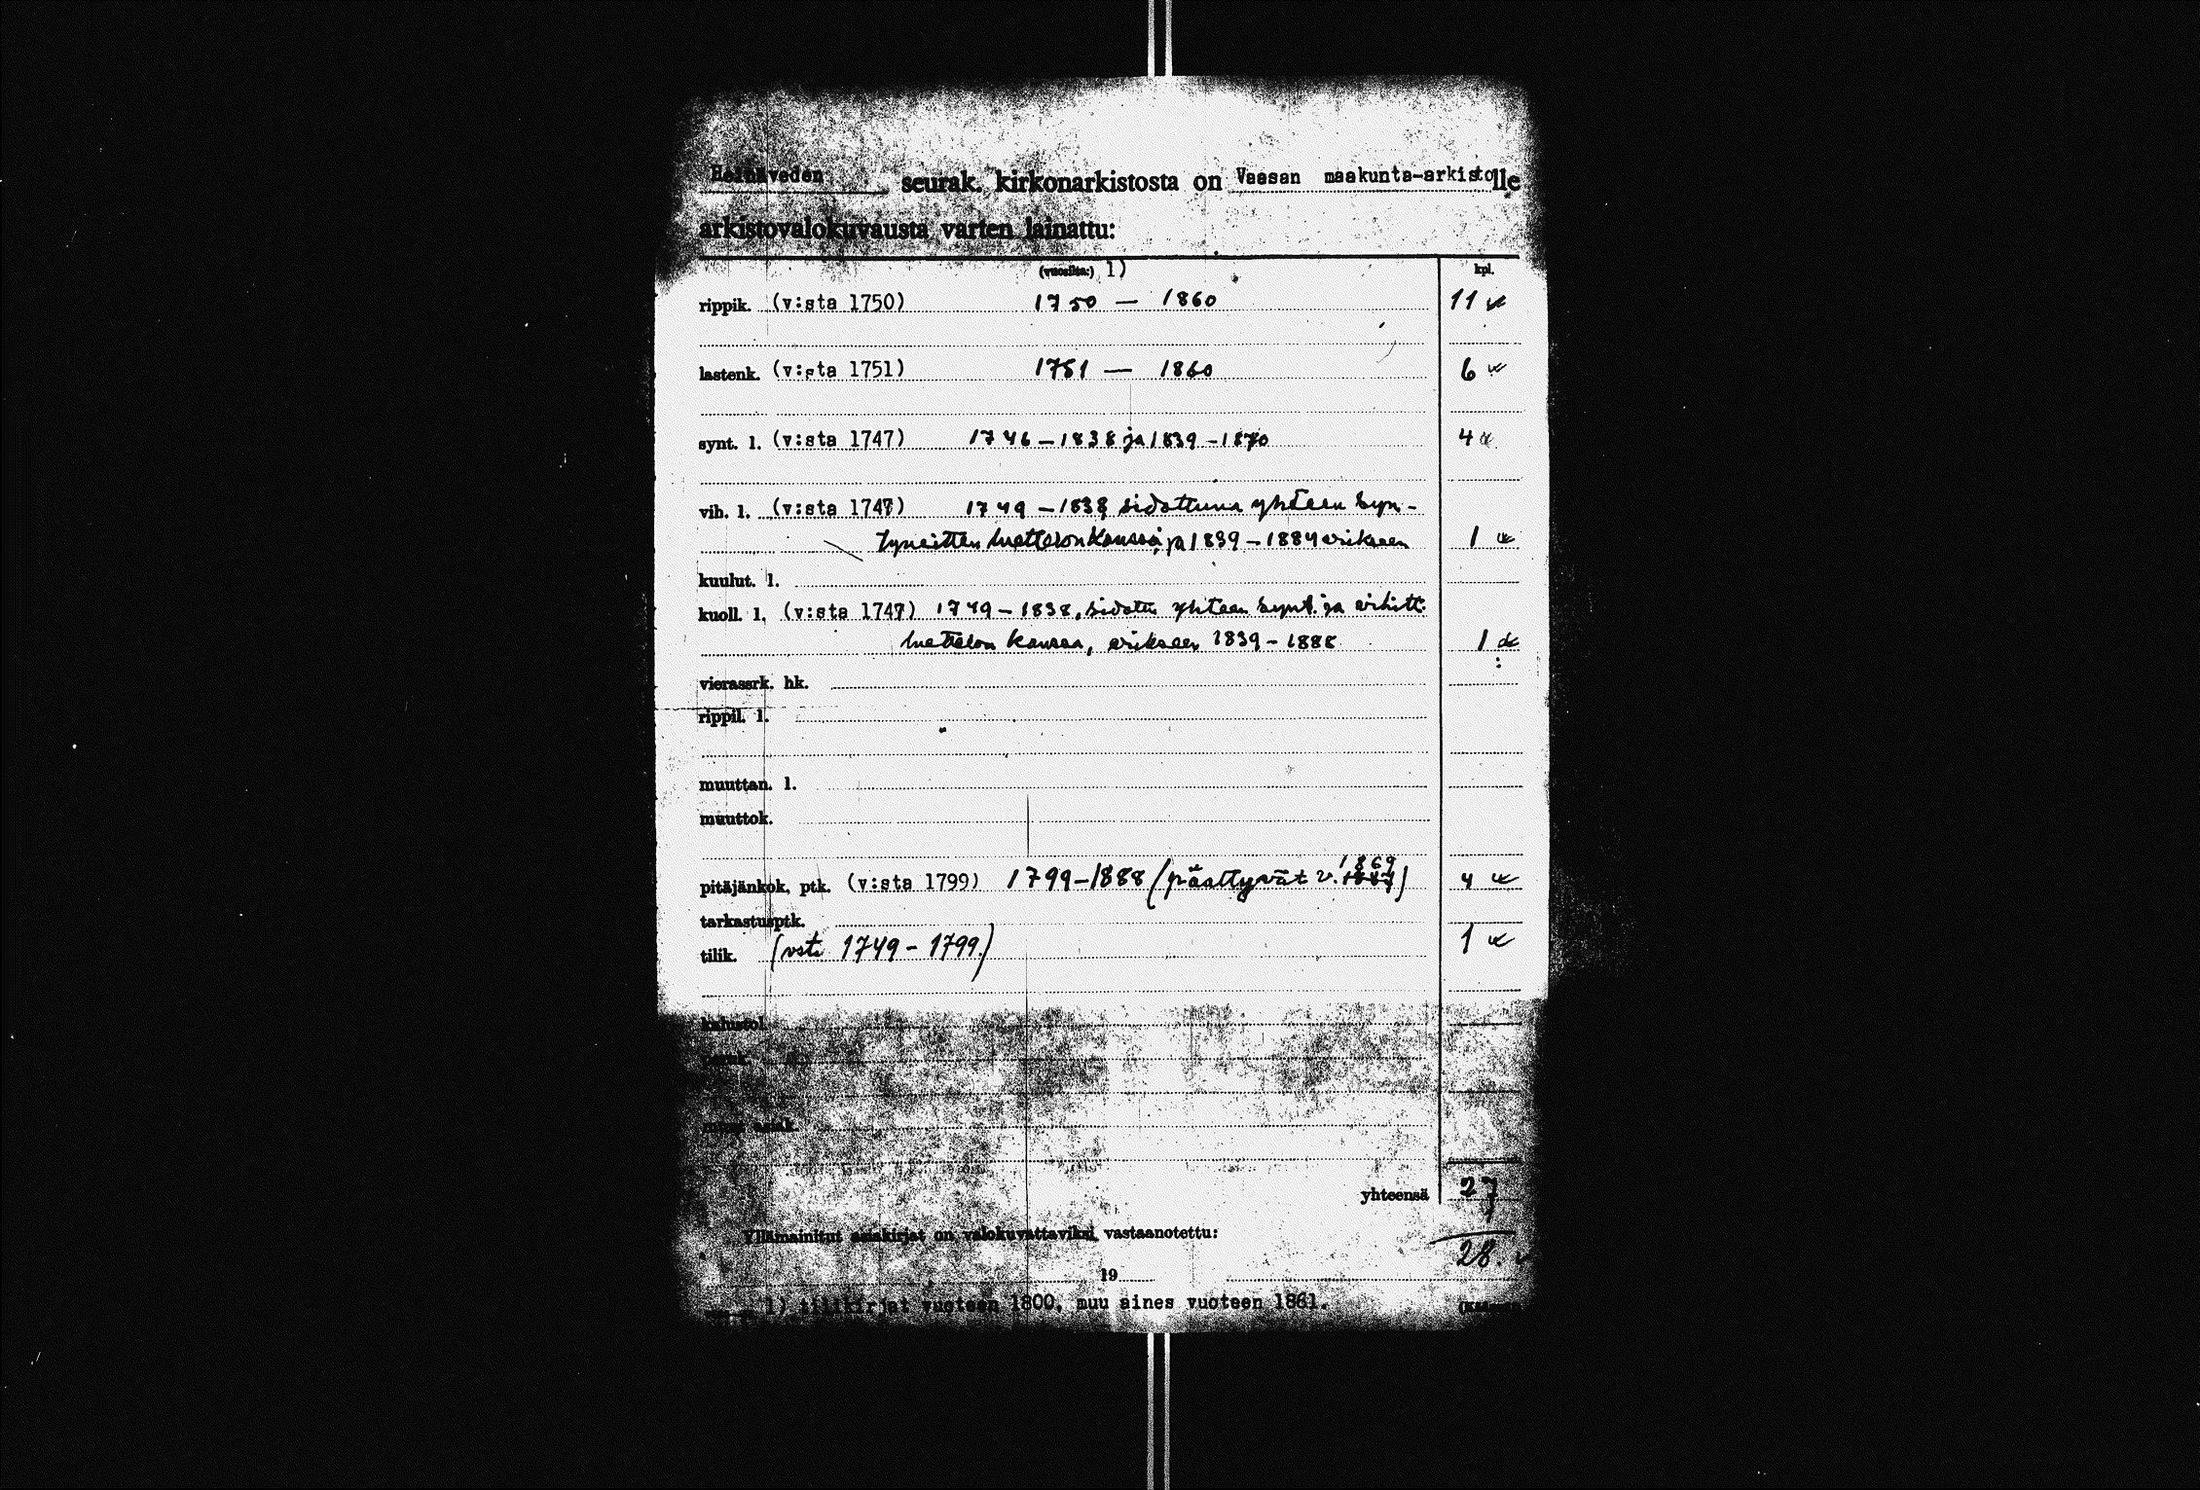 Heinäveden seurak. kirkonarkistosta on Vaasan maakunta-arkistolle
arkistovalokuvausta varten lainattu:
(vuosilta:) 1) kpl.
rippik. (v:sta 1750) 1750 — 1860 11
lastenk. (v:sta 1751) 1751 — 1860 6
synt. l. (v:sta 1747) 1746 – 1838 ja 1839 – 1870 4
vih. l. (v:sta 1747) 1749 – 1838 sidottuna yhteen syn-
tyneitten luettelon kanssa, ja 1839 – 1884 erikseen 1
kuulut. l.
kuoll. l. (v:sta 1747) 1749 – 1838, sidottu yhteen synt. ja vihitt.
luettelon kanssa, erikseen 1839 – 1888 1
vierassrk. hk.
rippil. l.
muuttan. l.
muuttok.
1869
pitäjänkok. ptk. (v:sta 1799) 1799–1888 (päättyvät v. 1887) 4
tarkastusptk.
tilik. (vsta 1749 – 1799.) 1
kalustol.
yhteensä 27
Yllämainitut asiakirjat on valokuvattaviksi vastaanotettu:
28.
19
1) tilikirjat vuoteen 1800, muu aines vuoteen 1861.